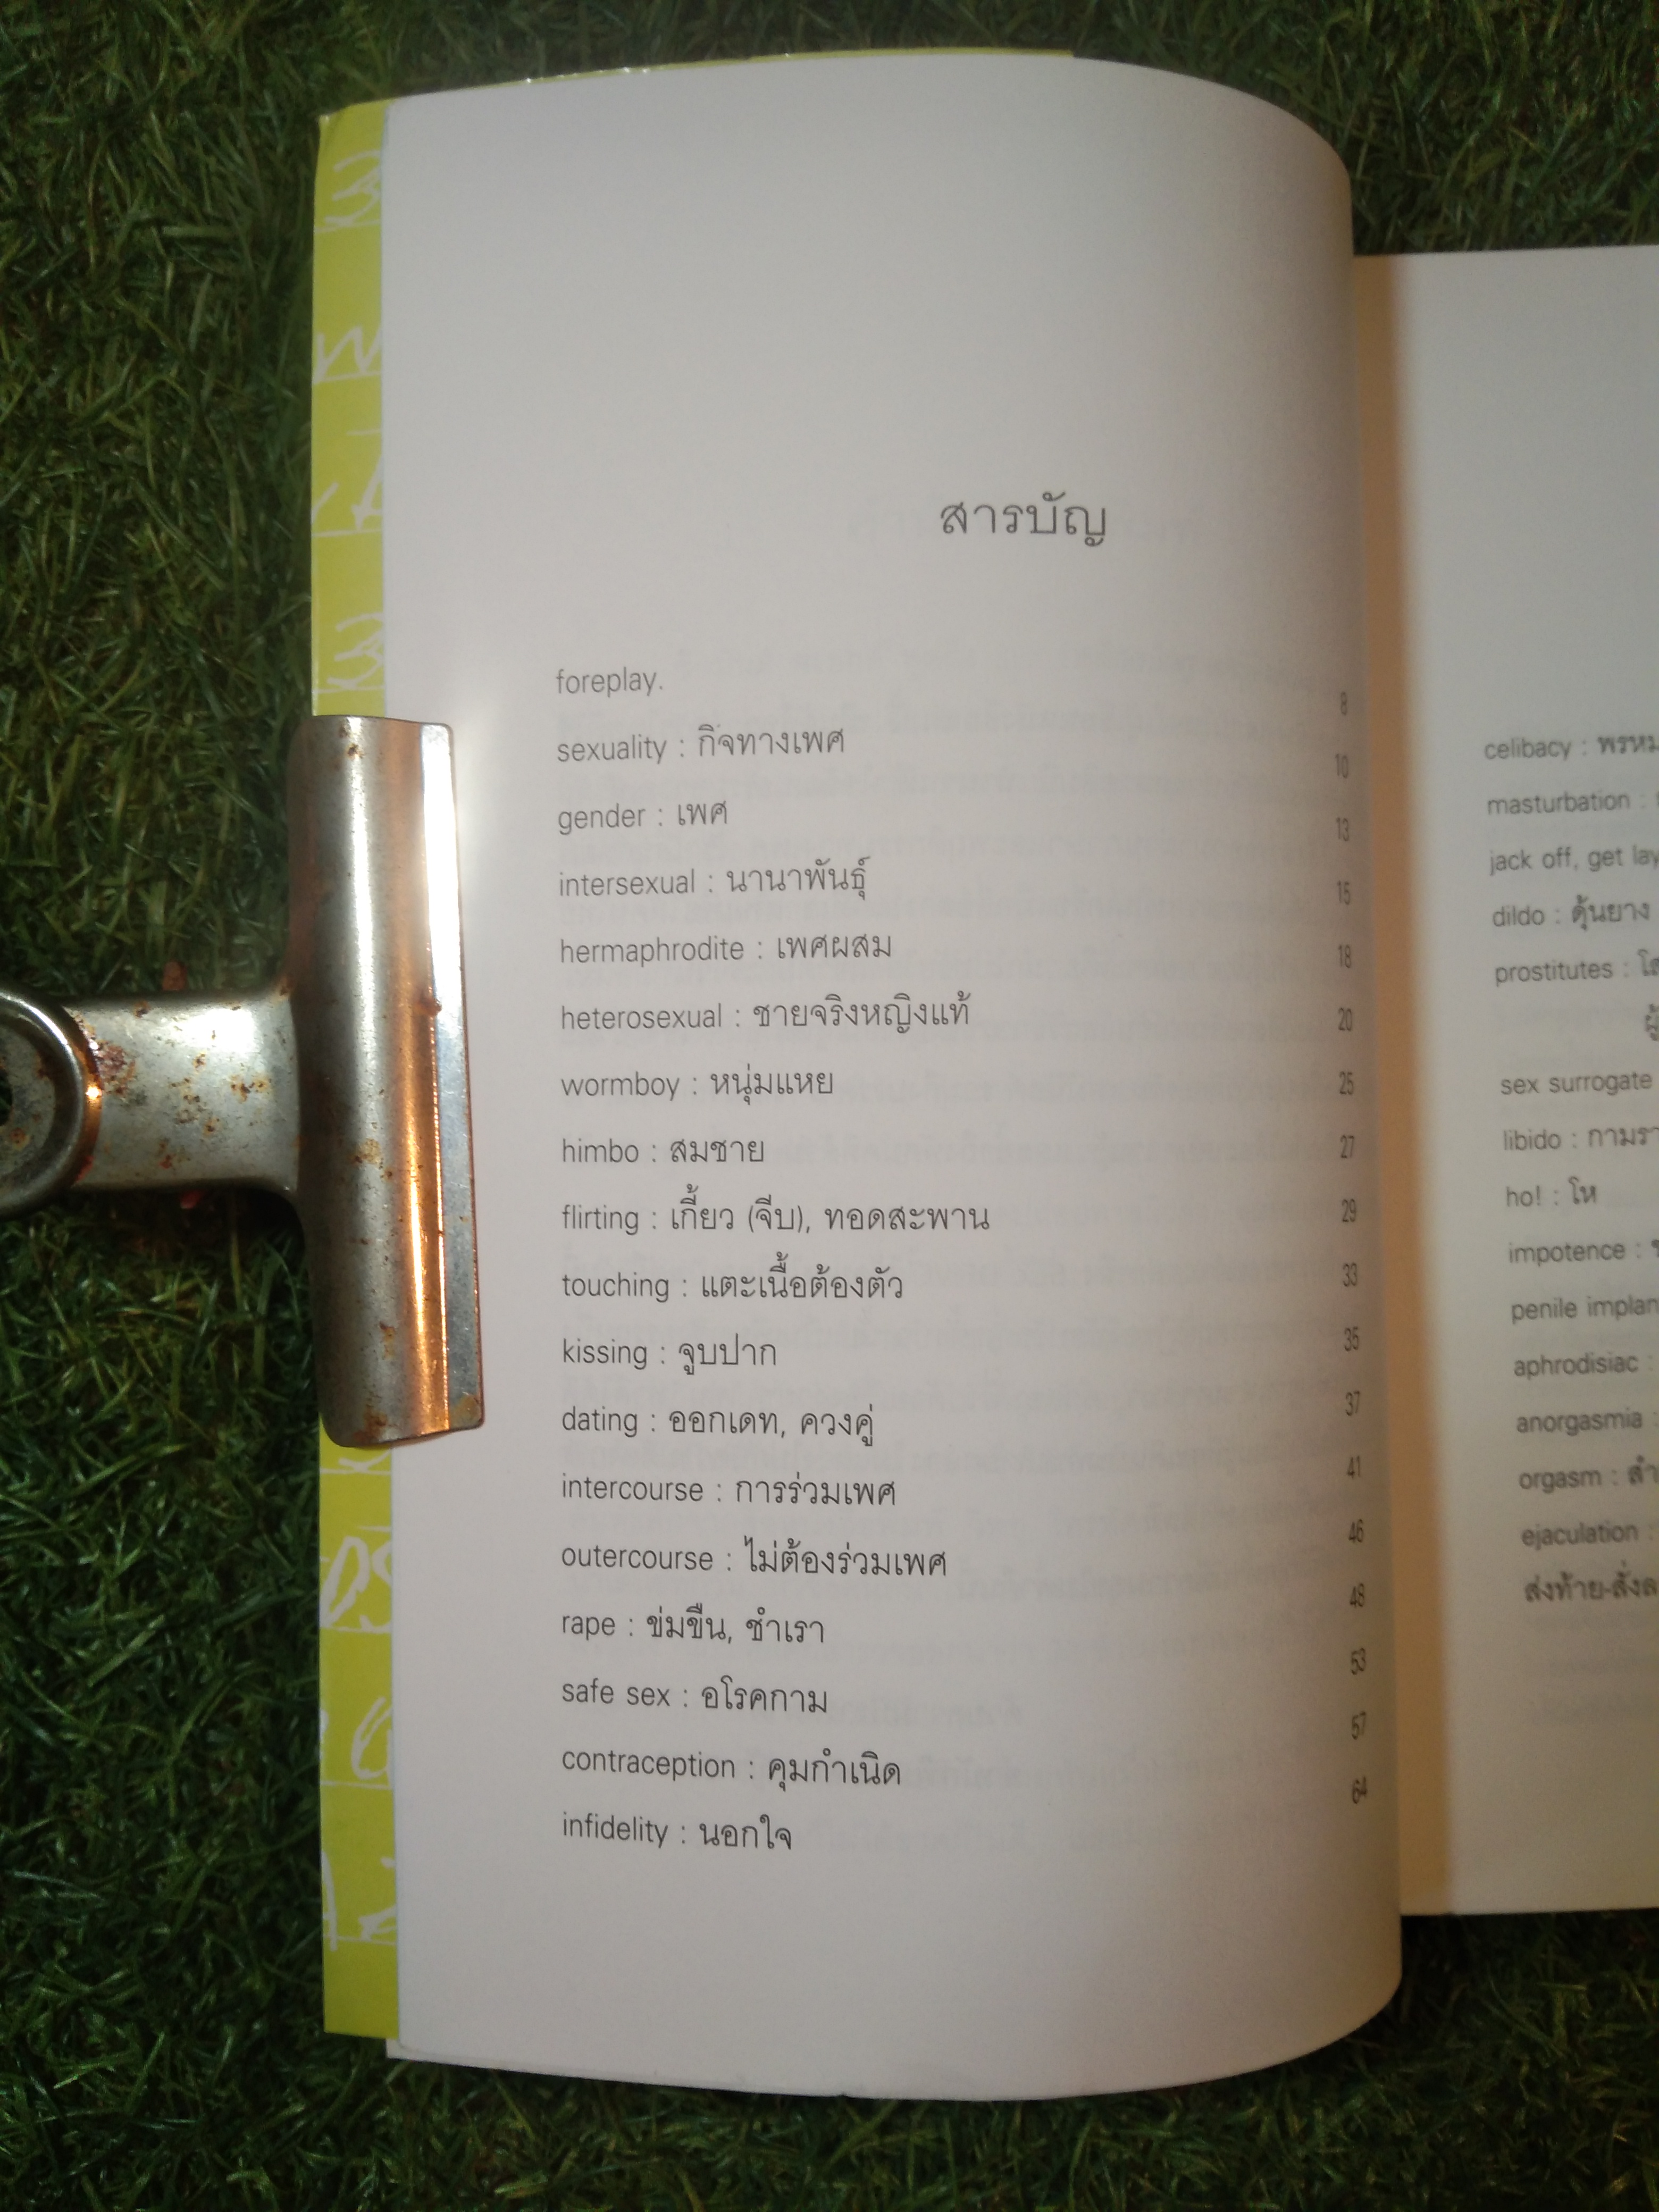 สารบัญ
foreplay. 8
sexuality : กิจทางเพศ 10
gender : เพศ 13
intersexual : นานาพันธุ์ 15
hermaphrodite : เพศผสม 18
heterosexual : ชายจริงหญิงแท้ 20
wormboy : หนุ่มแหย 25
himbo : สมชาย 27
flirting : เกี้ยว (จีบ), ทอดสะพาน 29
touching : แตะเนื้อต้องตัว 33
kissing : จูบปาก 35
dating : ออกเดท, ควงคู่ 37
intercourse : การร่วมเพศ 41
outercourse : ไม่ต้องร่วมเพศ 46
rape : ข่มขืน, ชำเรา 48
safe sex : อโรคกาม 53
contraception : คุมกำเนิด 57
infidelity : นอกใจ 64
celibacy :
masturbation :
jack off, get lay
dildo : ตุ้นยาง
prostitutes :
sex surrogate
libido :
ho! : โห
impotence :
penile implan
aphrodisiac :
anorgasmia :
orgasm :
ejaculation :
ส่งท้าย-สั่งล